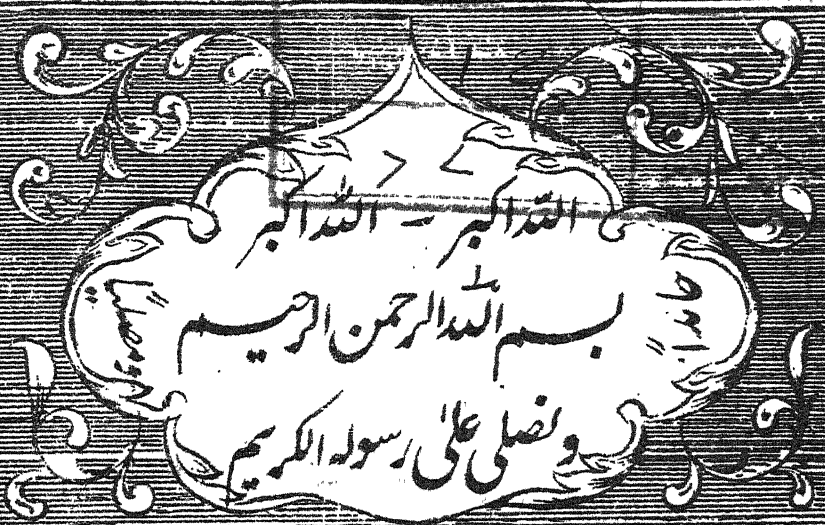 اللہ اکبر - اللہ اکبر
حامداً
بسم اللہ الرحمن الرحیم
ومصلیاً
و نصلی علیٰ رسولہ الکریم